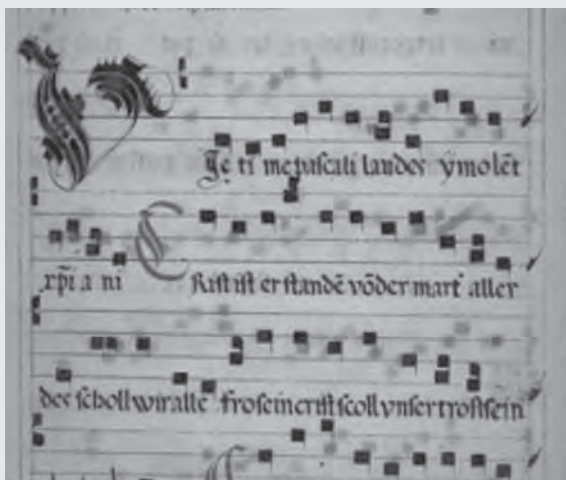 VJc ti me paſcali laudes ymolēt
xp̄i a ni CRiſt iſt er ſtandē vō der mart' aller
des ſcholl wir alle fro ſein criſt ſcoll vnſer troſt ſein